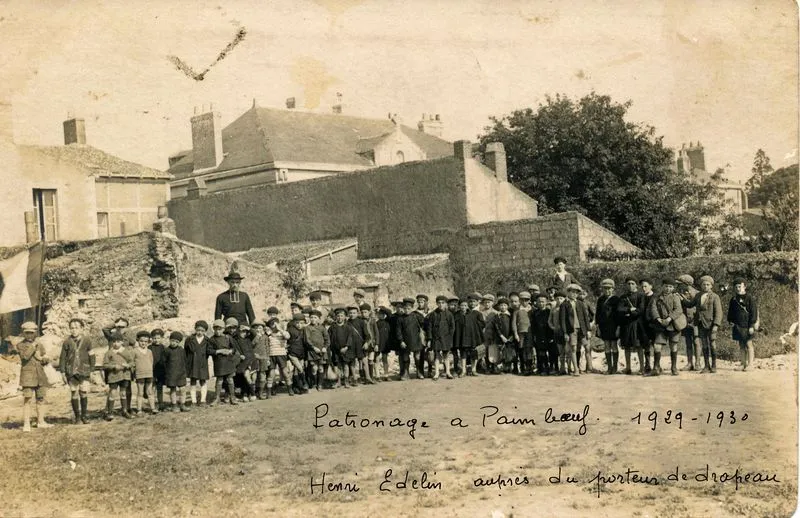 Patronage a Paimbœuf. 1929-1930
Henri Edelin auprès du porteur de drapeau